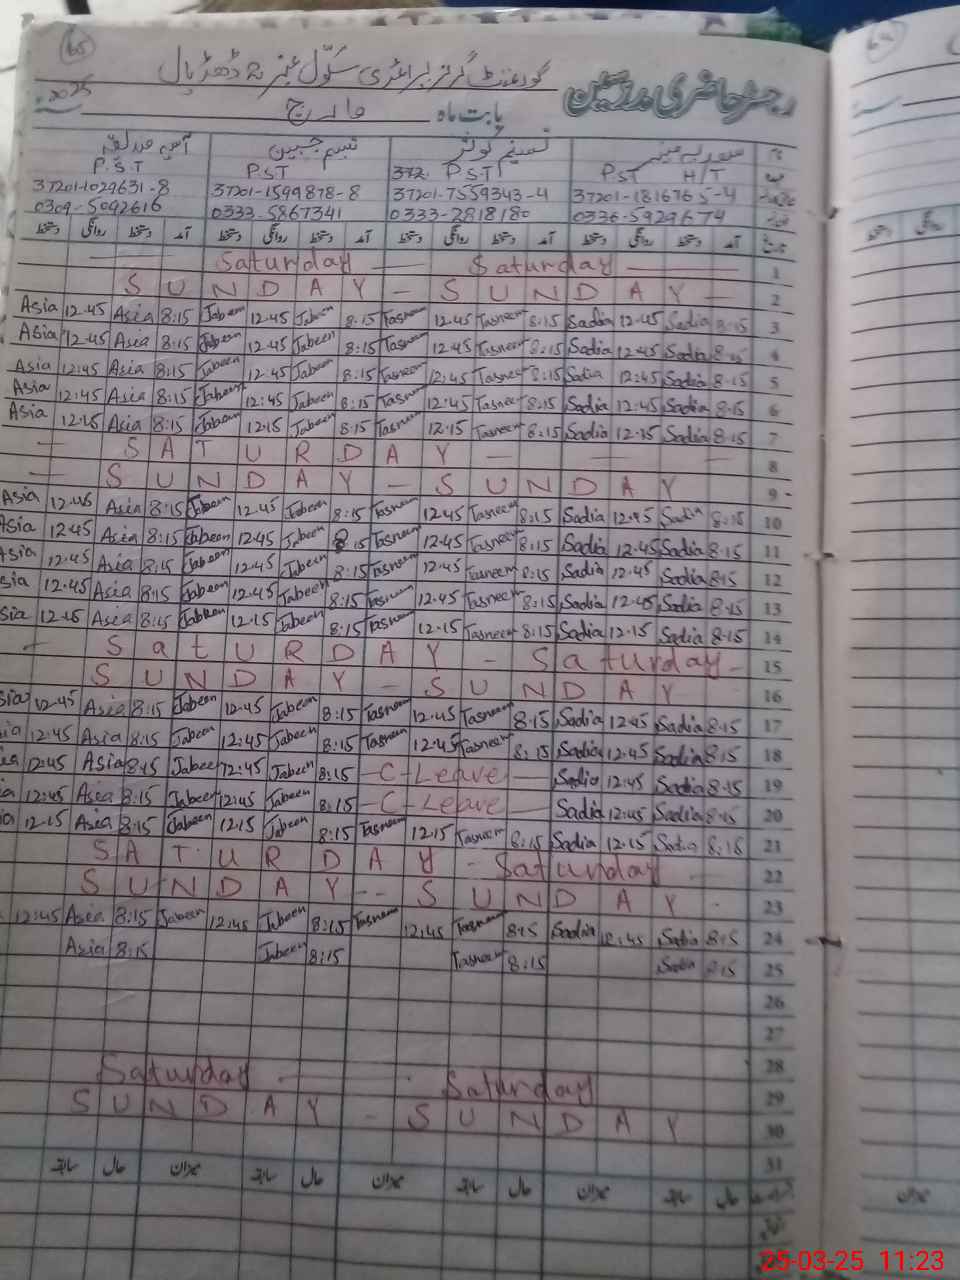 65
رجسٹر حاضری مدرسین گورنمنٹ گرلز پرائمری سکول نمبر 2 ڈھڈیال
بابت ماہ مارچ 2025
نام سعدیہ تسنیم کوثر تبسم جبین
PST H/T P.S.T PST P.S.T
37201-1816765-4 37201-7559343-4 37201-1599878-8 37201-1029631-8
0336-5929674 0333-2818180 0333-5867341 0309-5092616
تاریخ آمد دستخط روانگی دستخط آمد دستخط روانگی دستخط آمد دستخط روانگی دستخط آمد دستخط روانگی دستخط
Saturday — Saturday 1
SUNDAY - SUNDAY 2
Asia 12.45 Asia 8:15 Jabeen 12.45 Jabeen 8:15 Tasneem 12.45 Tasneem 8:15 Sadia 12.45 Sadia 8:15 3
Asia 12.45 Asia 8:15 Jabeen 12.45 Jabeen 8:15 Tasneem 12.45 Tasneem 8:15 Sadia 12.45 Sadia 8:15 4
Asia 12:45 Asia 8:15 Jabeen 12.45 Jabeen 8:15 Tasneem 12.45 Tasneem 8:15 Sadia 12:45 Sadia 8:15 5
Asia 12:45 Asia 8:15 Jabeen 12:45 Jabeen 8:15 Tasneem 12.45 Tasneem 8:15 Sadia 12.45 Sadia 8:15 6
Asia 12.15 Asia 8:15 Jabeen 12.15 Jabeen 8:15 Tasneem 12.15 Tasneem 8:15 Sadia 12.15 Sadia 8:15 7
SATURDAY 8
SUNDAY - SUNDAY 9
Asia 12.45 Asia 8:15 Jabeen 12.45 Jabeen 8:15 Tasneem 12.45 Tasneem 8:15 Sadia 12.45 Sadia 8:15 10
Asia 12.45 Asia 8:15 Jabeen 12.45 Jabeen 8:15 Tasneem 12.45 Tasneem 8:15 Sadia 12.45 Sadia 8.15 11
Asia 12.45 Asia 8:15 Jabeen 12.45 Jabeen 8:15 Tasneem 12.45 Tasneem 8:15 Sadia 12.45 Sadia 8.15 12
sia 12.45 Asia 8:15 Jabeen 12.45 Jabeen 8:15 Tasneem 12.45 Tasneem 8:15 Sadia 12.45 Sadia 8.15 13
sia 12.15 Asia 8:15 Jabeen 12.15 Jabeen 8:15 Tasneem 12.15 Tasneem 8:15 Sadia 12.15 Sadia 8.15 14
SatURDAY - Saturday - 15
SUNDAY - SUNDAY 16
sia 12.45 Asia 8:15 Jabeen 12.45 Jabeen 8:15 Tasneem 12.45 Tasneem 8.15 Sadia 12.45 Sadia 8.15 17
ia 12.45 Asia 8:15 Jabeen 12:45 Jabeen 8:15 Tasneem 12.45 Tasneem 8:15 Sadia 12.45 Sadia 8.15 18
ia 12.45 Asia 8:15 Jabeen 12:45 Jabeen 8:15 - C-Leave Sadia 12.45 Sadia 8.15 19
a 12:45 Asia 8:15 Jabeen 12:45 Jabeen 8:15 - C-Leave Sadia 12:45 Sadia 8.15 20
ia 12.15 Asia 8:15 Jabeen 12.15 Jabeen 8:15 Tasneem 12.15 Tasneem 8:15 Sadia 12.15 Sadia 8:15 21
SATURDAY - Saturday 22
SUNDAY -- SUNDAY 23
12:45 Asia 8:15 Jabeen 12:45 Jabeen 8:15 Tasneem 12.45 Tasneem 8:15 Sadia 12.45 Sadia 8:15 24
Asia 8:15 Jabeen 8:15 Tasneem 8:15 Sadia 8.15 25
26
27
28
Saturday Saturday 29
SUNDAY - SUNDAY 30
31
حال سابقہ میزان حال سابقہ میزان حال سابقہ میزان حال سابقہ
25-03-25 11:23